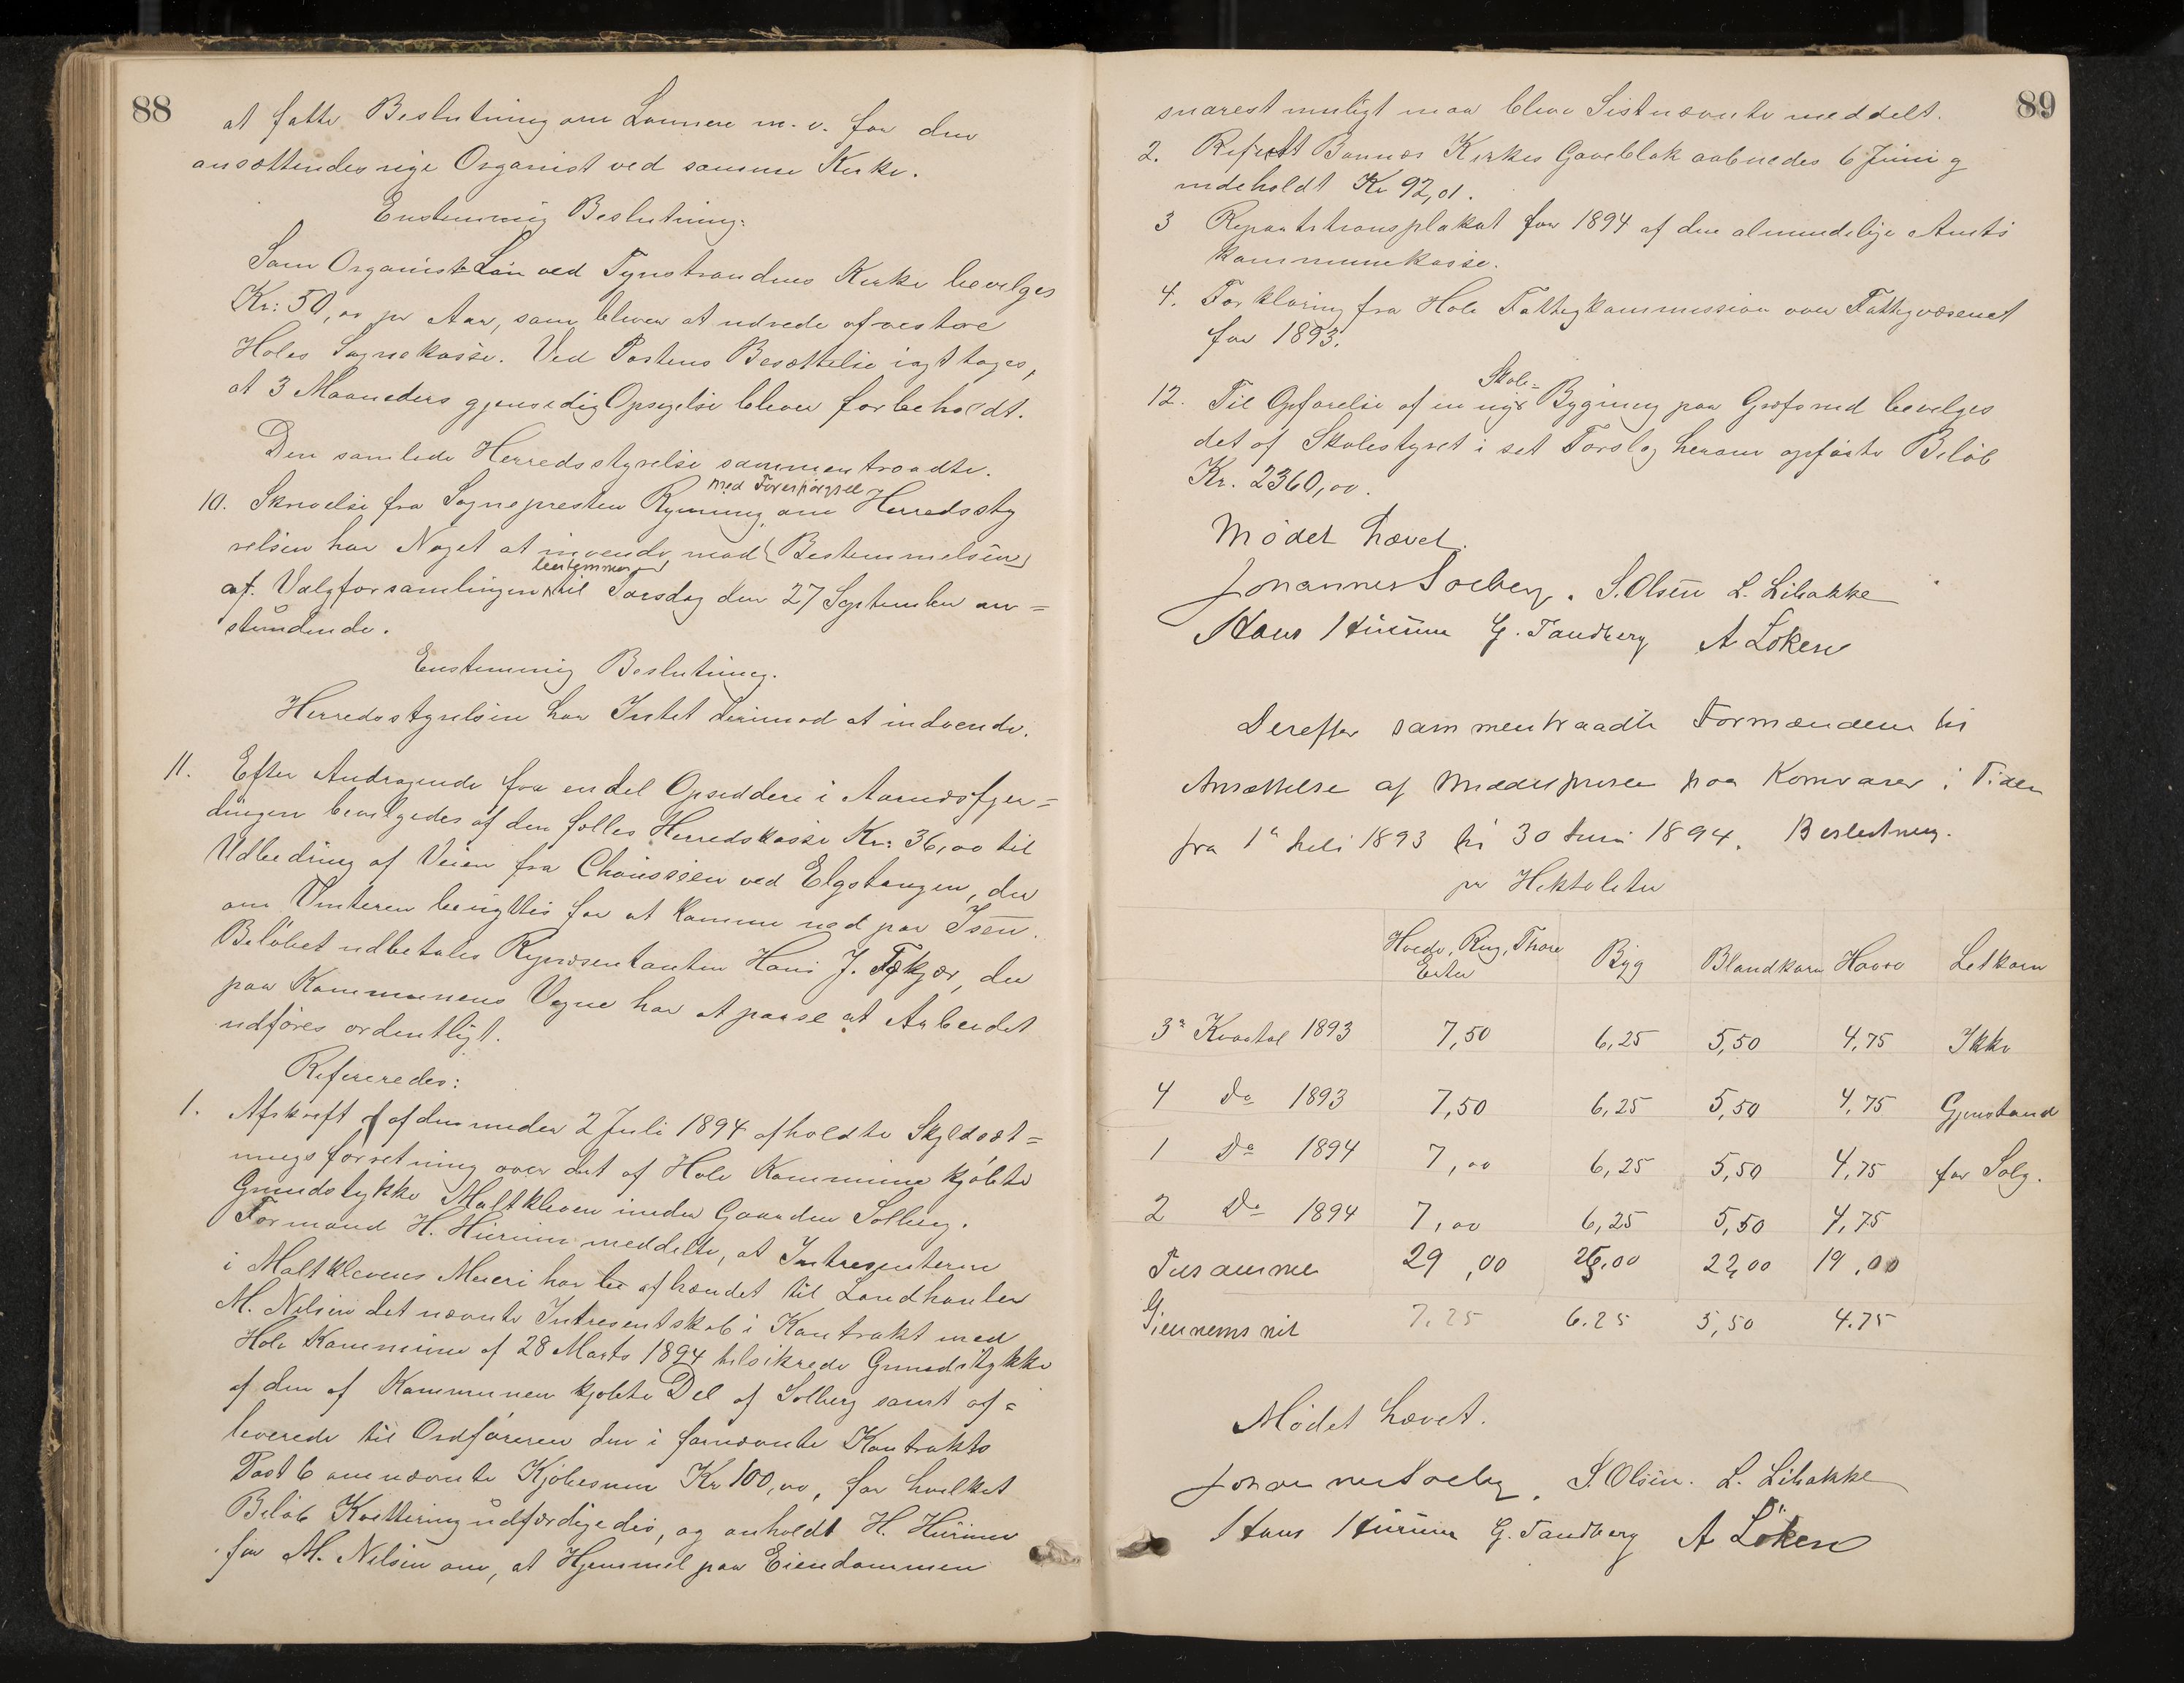 88
at fatte Beslutning om Lønnen m. v. for den
ansættendes nye Organist ved samme Kirke.
Enstemmig Beslutning:
Som Organist Løn ved Tynstrandens Kirke bevilges
Kr: 50,00 pr Aar, som bliver at udrede af vestre
Holes Sognekasse. Ved Postens Besættelse iagttages,
at 3 Maaneders gjensidig Opsigelse bliver forbeholdt.
Den samlede Herredsstyrelse sammentraadte.
10. Skrivelse fra Sognepresten Rynning med Forespørgsel om Herredssty
relsen har Noget at invende mod (Bestemmelsen)
af. Valgforsamlingen bestemmes til Torsdag den 27 September an=
stundende.
Enstemmig Beslutning.
Herredsstyrelsen har Intet derimod at indvende.
11. Efter Andragende fra en del Opsiddere i Aarnæsfjer=
dingen bevilgedes af den fælles Herredskasse Kr: 36,00 til
Udbedring af Veien fra Chausseen ved Elgstangen, der
om Vinteren benyttes for at komme ned paa Isen.
Beløbet udbetales Repræsentanten Hans J. Fekjær, der
paa Kommunens Vegne har at paase at Arbeidet
udføres ordentligt.
Refereredes:
1. Afskrift af den under 2 Juli 1894 afholdte Skyldsæt=
ningsforretning over det af Hole Kommune kjøbte
Grundstykke Maltkleven under Gaarden Solberg.
Formand H. Hurum meddelte, at Intresenterne
i Maltklevens Meieri har afhændet til Landhanler
M. Nilsen det nævnte Intresentskab i Kontrakt med
Hole Kommune af 28 Marts 1894 tilsikrede Grundstykke
af den af Kommunen kjøbte Del af Solberg samt af=
leverede til Ordføreren den i fornævnte Kontrakts
Post 6 omnævnte Kjøbesum Kr 100,00, for hvilket
Beløb Kvittering udfærdigedes, og anholdt H. Hurum
for M. Nilsen om, at Hjemmel paa Eiendommen
89
snarest muligt maa blive Sistnævnte meddelt.
2. Refertt Bønsnæs Kirkes Gaveblok aabnedes 6 Juni g
indeholdt Kr 92,01.
3 Repartitionsplakat for 1894 af den almindelige Amts
kommunekasse.
4. Forklaring fra Hole Fattigkommission over Fattigvæsenet
for 1893.
12. Til Opførelse af en ny Skole= Bygning paa Græfsrud bevilges
det af Skolestyret i set Forslag herom opførte Beløb
Kr. 2360,00.
Mødet hævet.
Johannes Soelberg. S. Olsen L. Libakke
Hans Hurum G. Tandberg A Løken
Derefter sammentraadte Formændene til
Ansættelse af Middelprisen paa Kornvarer i Tiden
fra 1ste Juli 1893 til 30 Juni 1894. Beslutning.
pr Hektoliter
Hvede, Rug, Erter Byg Blandkorn Havre Letkorn
3die Kvartal 1893 7,50 6,25 5,50 4,75 Ikke
4 do 1893 7,50 6,25 5,50 4,75 Gjenstand
1 do 1894 7,00 6,25 5,50 4,75 for Salg.
2 do 1894 7,00 6,25 5,50 4,75
Tilsammen 29,00 25,00 22,00 19,00
Giennemsnit 7.25 6.25 5,50 4.75
Mødet hævet.
Johannes Soelberg. S. Olsen. L. Libakke
Hans Hurum G. Tandberg A Løken